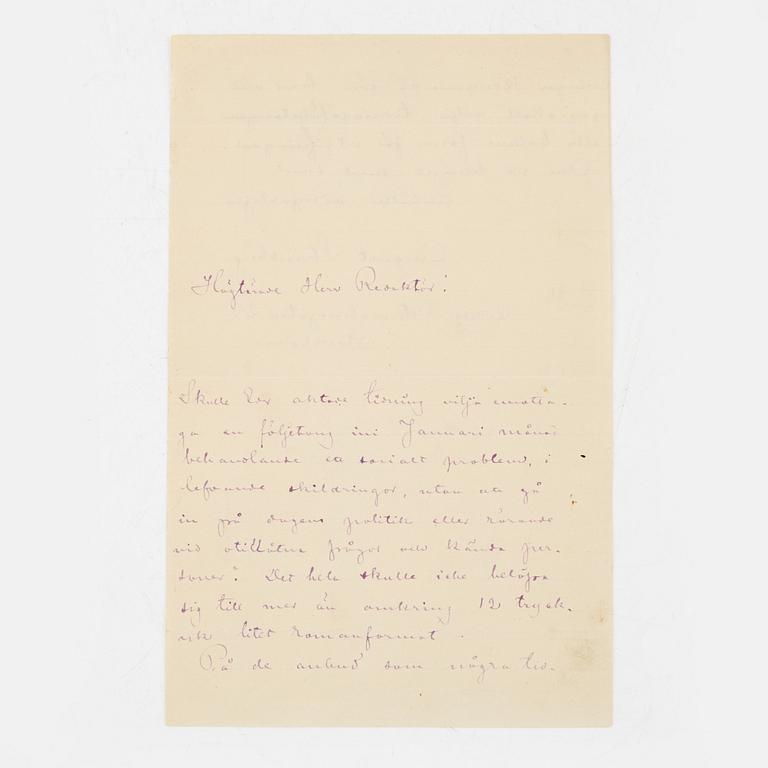 Högtärade Herr Redaktör!
Skulle Eder aktade tidning vilja emotta-
ga en följetong ini Januari månad
behandlande ett socialt problem, i
lefvande skildringar, utan att gå
in på dagens politik eller rörande
vid otillåtna frågor och kända per-
soner? Det hela skulle icke belöpa
sig till mer än omkring 12 tryck-
ark litet romanformat.
På de anbud som några tid-